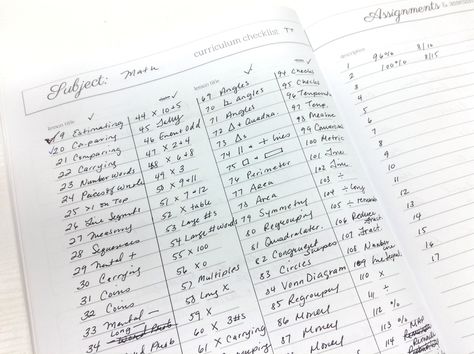 curriculum checklist
Subject: Math
lesson title
19 Estimating
20 Comparing
21 Comparing
22 Carrying
23 Number Words
24 Pieces of Whole
25 >1 on Top
26 Line Segments
27 Measuring
28 Sequences
29 Mental +
30 Carrying
31 Coins
32 Coins
33 Mental -
34 Long
44 X 10+5
45 Tally
46 Even + odd
47 X 2+4
48 X 6+8
49 X 3
50 X 9+11
51 X 7+12
52 X table
53 Large #s
54 Large # words
55 X 100
56 X 0
57 Multiples
58 Long X
59 X
60 X 3#s
61 X Carrying
lesson title
69 Angles
70 angles
71 Angles
72 Δ + Quadra.
73 Δs
74 Lines
75
76 Perimeter
77 Area
78 Area
79 Symmetry
80 Regrouping
81 Quadralater.
82 Congruent Shapes
83 Circles
84 Venn Diagram
85 Regrouping
86 Money
87 Money
94 Checks
95 Checks
96
97 Temp.
98
99
100 Metric
101 Time
102 Time
103 ÷
104 ÷ Long
105 ÷
106 Reduce Fract.
107 Fract.
108 Number line
109
110 X
111 ÷
112 %
113 %
114
Assignments
description
1 96% 8/10
2 100% 8/15
3
4
5
6
7
8
9
10
11
12
13
14
15
16
17